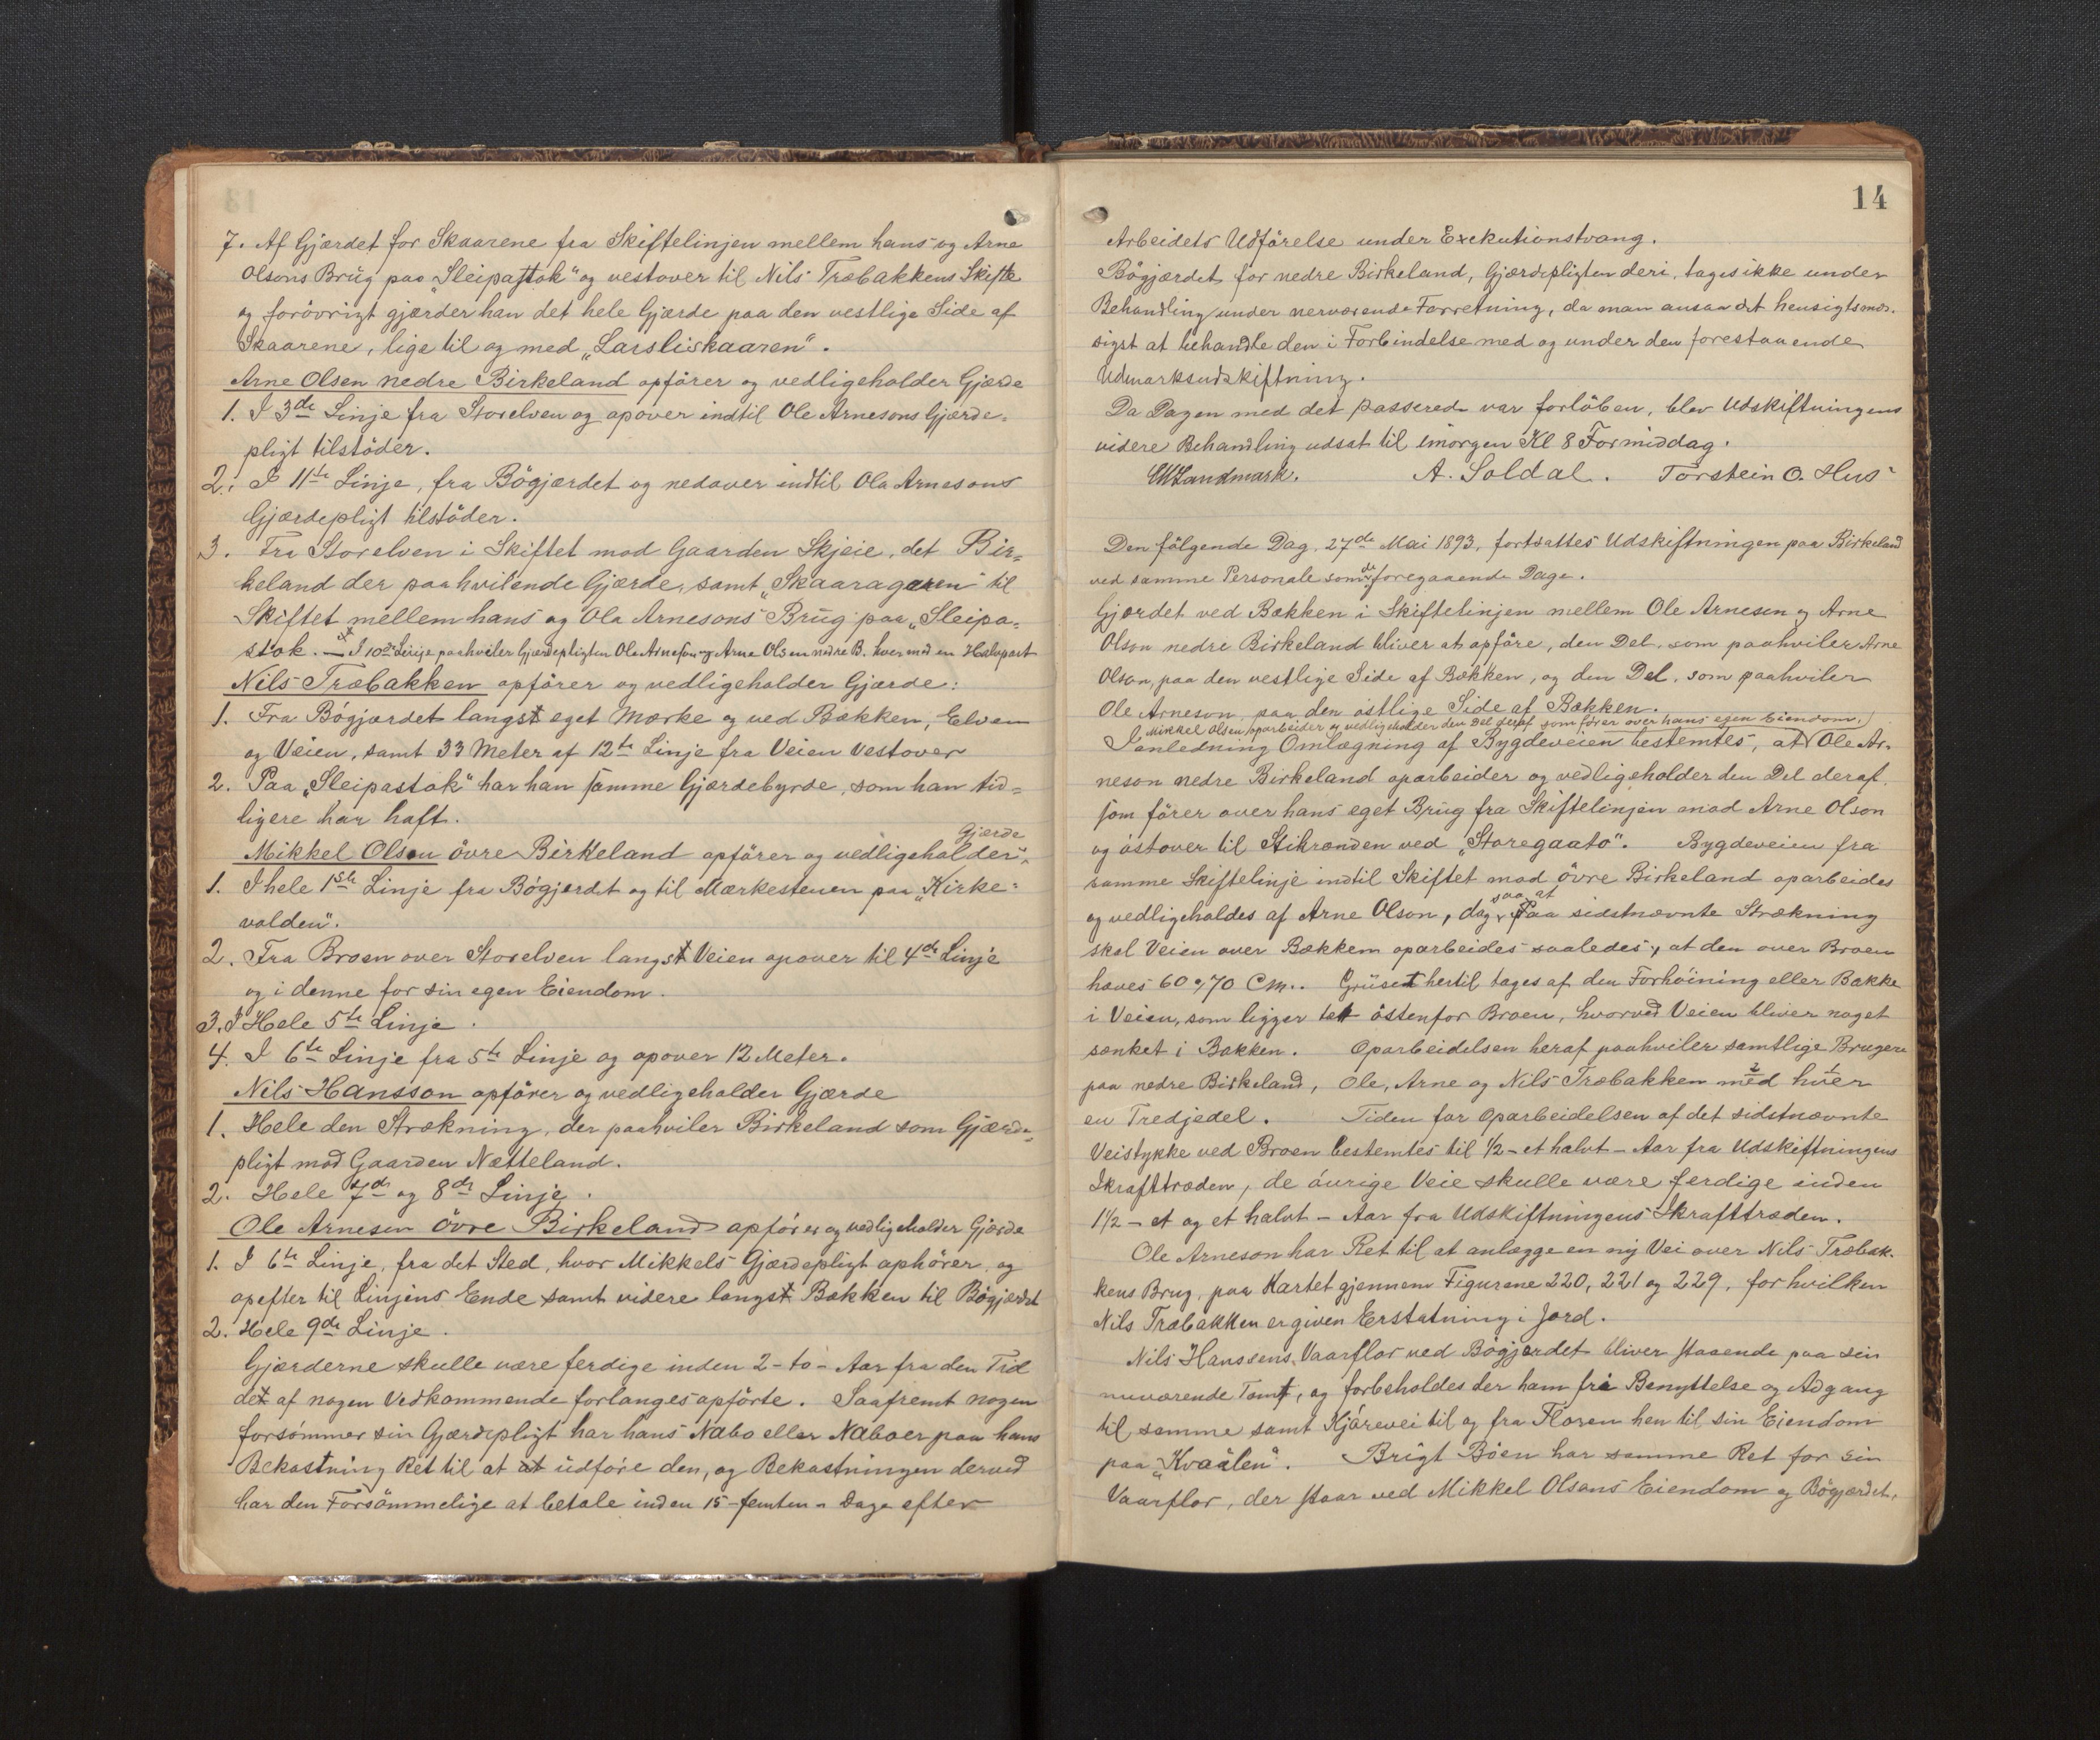 7. Af Gjærdet for Skaarene fra Skiftelinjen mellem hans og Arne
Olsons Brug paa „Sleipastok" og vestover til Nils Træbakkens Skifte
og forövrigt gjærder han det hele Gjærde paa den vestlige Side af
Skaarene, lige til og med „Larsliskaaren".
Arne Olsen nedre Birkeland opförer og vedligeholder Gjærde
1. I 3de Linje fra Storelven og opover indtil Ole Arnesons Gjærde-
pligt tilstöder.
2. I 11te Linje, fra Bögjærdet og nedover indtil Ola Arnesons
Gjærdepligt tilstöder.
3. Fra Storelven i Skiftet mod Gaarden Skjeie, det Bir-
keland der paahvilende Gjærde, samt „Skaaragaren" til
Skiftet mellem hans og Ola Arnesons Brug paa „Sleipa-
stok. — I 10de Linje paahviler Gjærdepligten Ole Arneson og Arne Olsen nedre B. hver med en Halvpart
Nils Træbakken opförer og vedligeholder Gjærde:
1. Fra Bögjærdet langst eget Mærke og ved Bækken, Elven
og Veien, samt 33 Meter af 12te Linje fra Veien vestover
2. Paa „Sleipastok" har han samme Gjærdebyrde, som han tid-
ligere har haft.
Gjærde
Mikkel Olsen övre Birkeland opförer og vedligeholder
1. I hele 1ste Linje fra Bögjærdet og til Mærkestenen paa „Kirke-
volden".
2. Fra Broen over Storelven langst Veien opover til 4de Linje
og i denne for sin egen Eiendom.
3. I Hele 5te Linje.
4. I 6te Linje fra 5te Linje og opover 12 Meter.
Nils Hansson opförer og vedligeholder Gjærde
1. Hele den Strækning, der paahviler Birkeland som Gjærde-
pligt mod Gaarden Nætteland.
2. Hele 7de og 8de Linje.
Ole Arnesen övre Birkeland opförer og vedligeholder Gjærde
1. I 6te Linje, fra det Sted, hvor Mikkels Gjærdepligt ophörer, og
opefter til Linjens Ende samt videre langst Bækken til Bögjærdet
2. Hele 9de Linje.
Gjærderne skulle være ferdige inden 2-to- Aar fra den Tid
det af nogen Vedkommende forlanges opförte. Saafremt nogen
forsömmer sin Gjærdepligt har hans Nabo eller Naboer paa hans
Bekostning Ret til at at udföre den, og Bekostningen derved
har den Forsömmelige at betale inden 15-femten- Dage efter
14
Arbeidets Udförelse under Exekutionstvang.
Bögjærdet for nedre Birkeland, Gjærdepligten deri, tages ikke under
Behandling under nerværende Forretning, da man ansaa det hensigtsmæs-
sigst at behandle den i Forbindelse med og under den forestaaende
Udmarksudskiftning.
Da Dagen med det passerede var forlöben, blev Udskiftningens
videre Behandling udsat til imorgen Kl 8 Formiddag.
Landmark. A. Soldal. Torstein O. Hus
Den fölgende Dag, 27de Mai 1893, fortsattes Udskiftningen paa Birkeland
ved samme Personale som de foregaaende Dage.
Gjærdet ved Bækken i Skiftelinjen mellem Ole Arnesen og Arne
Olson nedre Birkeland bliver at opföre, den Del, som paahviler Arne
Olson, paa den vestlige Side af Bækken, og den Del, som paahviler
Ole Arneson, paa den östlige Side af Bækken.
Mikkel Olsen oparbeider og vedligeholder den Del deraf som förer over hans egen Eiendom,
I anledning Omlægning af Bygdeveien bestemtes, at Ole Ar-
neson nedre Birkeland oparbeider og vedligeholder den Del deraf
som förer over hans eget Brug fra Skiftelinjen mod Arne Olson
og östover til Stikrenden ved „Storegaato". Bygdeveien fra
samme Skiftelinje indtil Skiftet mod övre Birkeland oparbeides
og vedligeholdes af Arne Olson, dog saa at Paa sidstnævnte Strækning
skal Veien over Bækken oparbeides saaledes, at den over Broen
hæves 60 a 70 Cm.. Gruset hertil tages af den Forhöining eller Bakke
i Veien, som ligger tet östenfor Broen, hvorved Veien bliver noget
sænket i Bakken. Oparbeidelsen heraf paahviler samtlige Brugere
paa nedre Birkeland, Ole, Arne og Nils Træbakken med hver
en Tredjedel. Tiden for Oparbeidelsen af det sidstnævnte
Veistykke ved Broen bestemtes til 1/2 - et halvt - Aar fra Udskiftningens
Ikrafttræden, de övrige Veie skulle være ferdige inden
1 1/2 - et og et halvt - Aar fra Udskiftningens Ikrafttræden.
Ole Arneson har Ret til at anlægge en ny Vei over Nils Træbak-
kens Brug, paa Kartet gjennem Figurene 220, 221 og 229, for hvilken
Nils Træbakken er given Erstatning i Jord.
Nils Hanssens Vaarflor ved Bögjærdet bliver staaende paa sin
nuværende Tomt, og forbeholdes der ham fri Benyttelse og Adgang
til samme samt Kjörevei til og fra Floren hen til sin Eiendom
paa „Kvaalen". Brigt Böen har samme Ret for sin
Vaarflor, der staar ved Mikkel Olsons Eiendom og Bögjærdet.